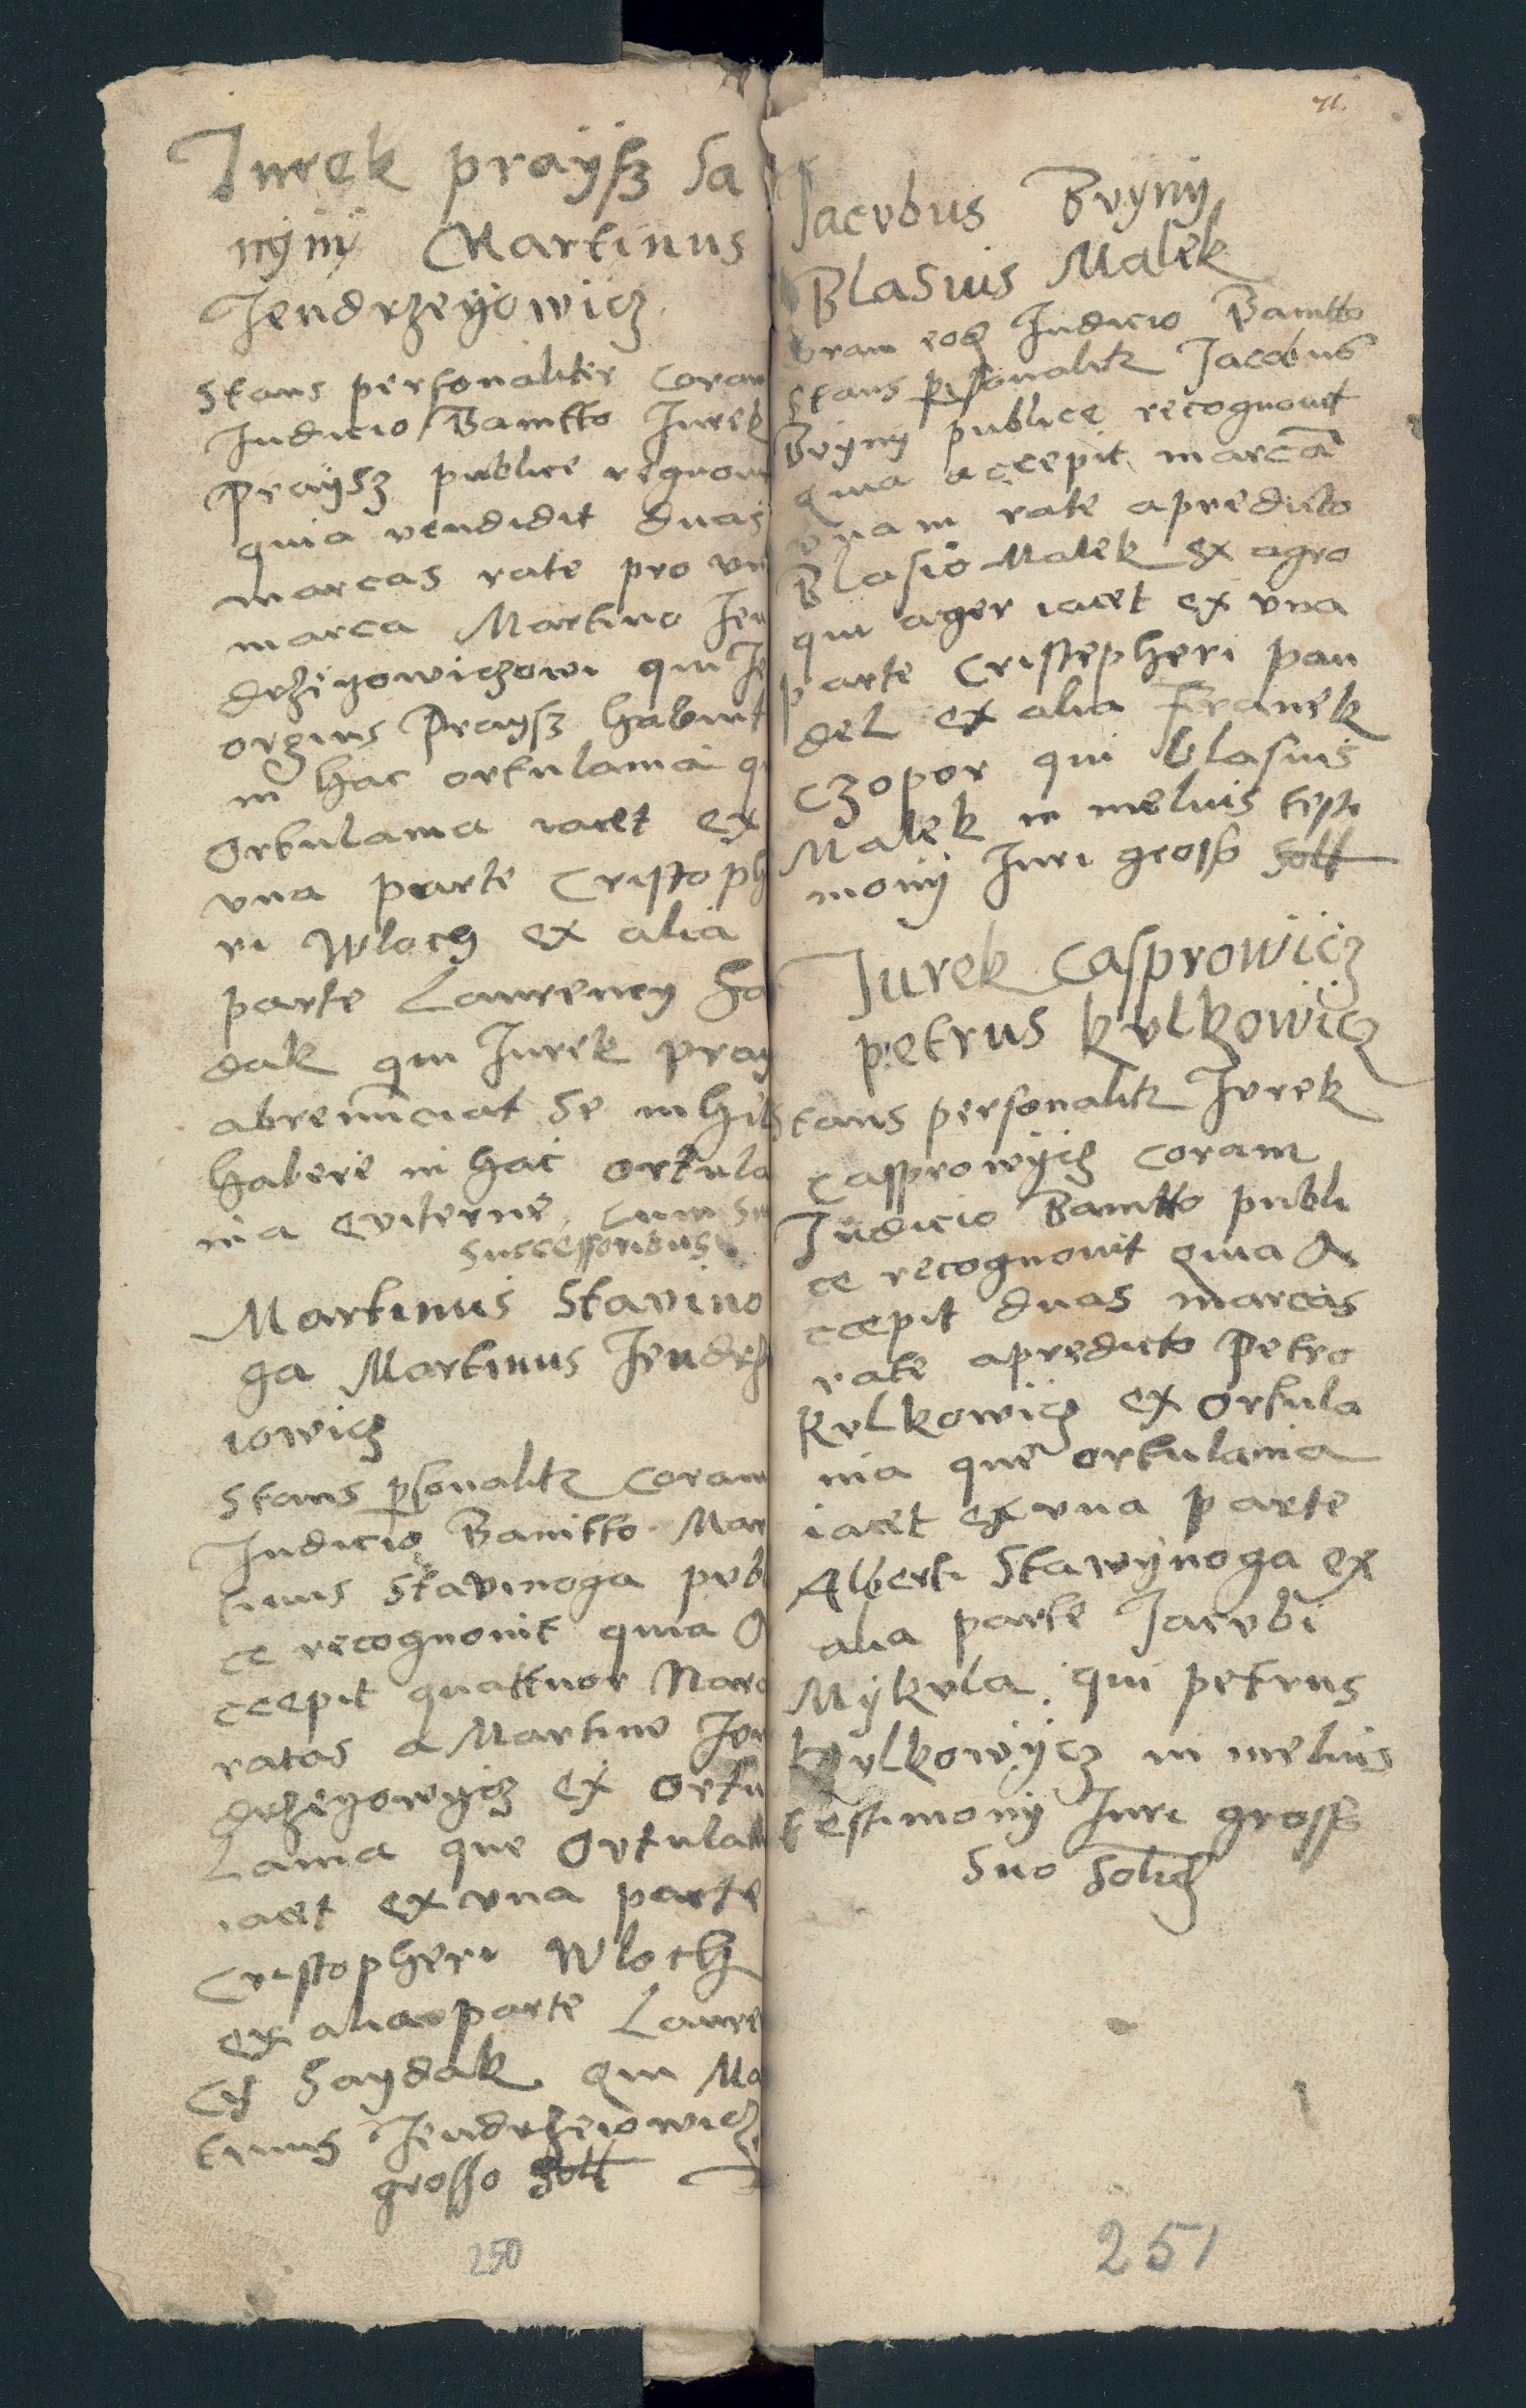 Jurek praÿsz Sa
nÿnÿ Martinus
Jendrzeÿowicz
Stans personaliter coram
Judicio Banitto Jurek
Praÿsz publice regnovi
quia vendidit duas
marcas rate pro un
marca Martino Jen
drzeyowiczowi qui Je
orgius Praysz habuit
in hac ortulania q
Ortulania iacet ex
vna parte Cristoph
ri Wloch ex alia
parte Laurency Sa
dak qui Jurek pray
abrenunciat se nihil
habere in hac ortula
nia eviterne cum su
successoribus
Martinus Stavino
ga Martinus Jendrz
iowicz
Stans psonalitr coram
Judicio Banitto Mar
tinus Stavinoga publ
ce recognouit quia A
ccepit quattuor Marc
ratas a Martino Jen
drzeyowycz ex Ortu
Lania que Ortulan
iacet ex vna parte
Cristopheri Wloch
ex alia parte Laure
cy Saydak qui Ma
tinus Jendrzeiowicz
grosso Soll
250
71.
Jacobus Bvynÿ
Blasius Malek
oram eod Judicio Banitto
Stans psonalitr Jacobus
Bvyny publice recognouit
quia accepit marcā
vnam rate apredicto
Blasio Malek ex agro
qui ager iacet ex vna
parte Cristepheri pan
del ex alia Franek
czopor qui blasius
Malek in melius testi
monÿ Juri gross Soll
Jurek Casprowicz
petrus kulkowicz
Stans personalitr Jurek
Casprowÿcz coram
Judicio Banitto publi
ce recognouit quia A
ccepit duas marcas
rate apredicto Petro
Kulkowicz ex Ortula
nia que ortulania
iacet ex vna parte
Alberti Stawÿnoga ex
alia parte Jacobi
Mÿkula qui petrus
kulkowÿcz in melius
testimonÿ Juri gross
suo
251